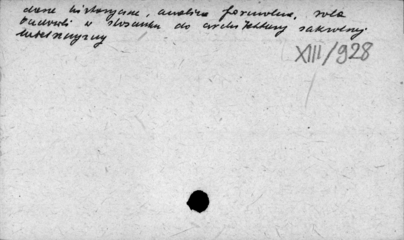 dane historyczne, analiza formalna, rola
budowli w stosunku do architektury sakralnej
lubelszczyzny
XIII/928